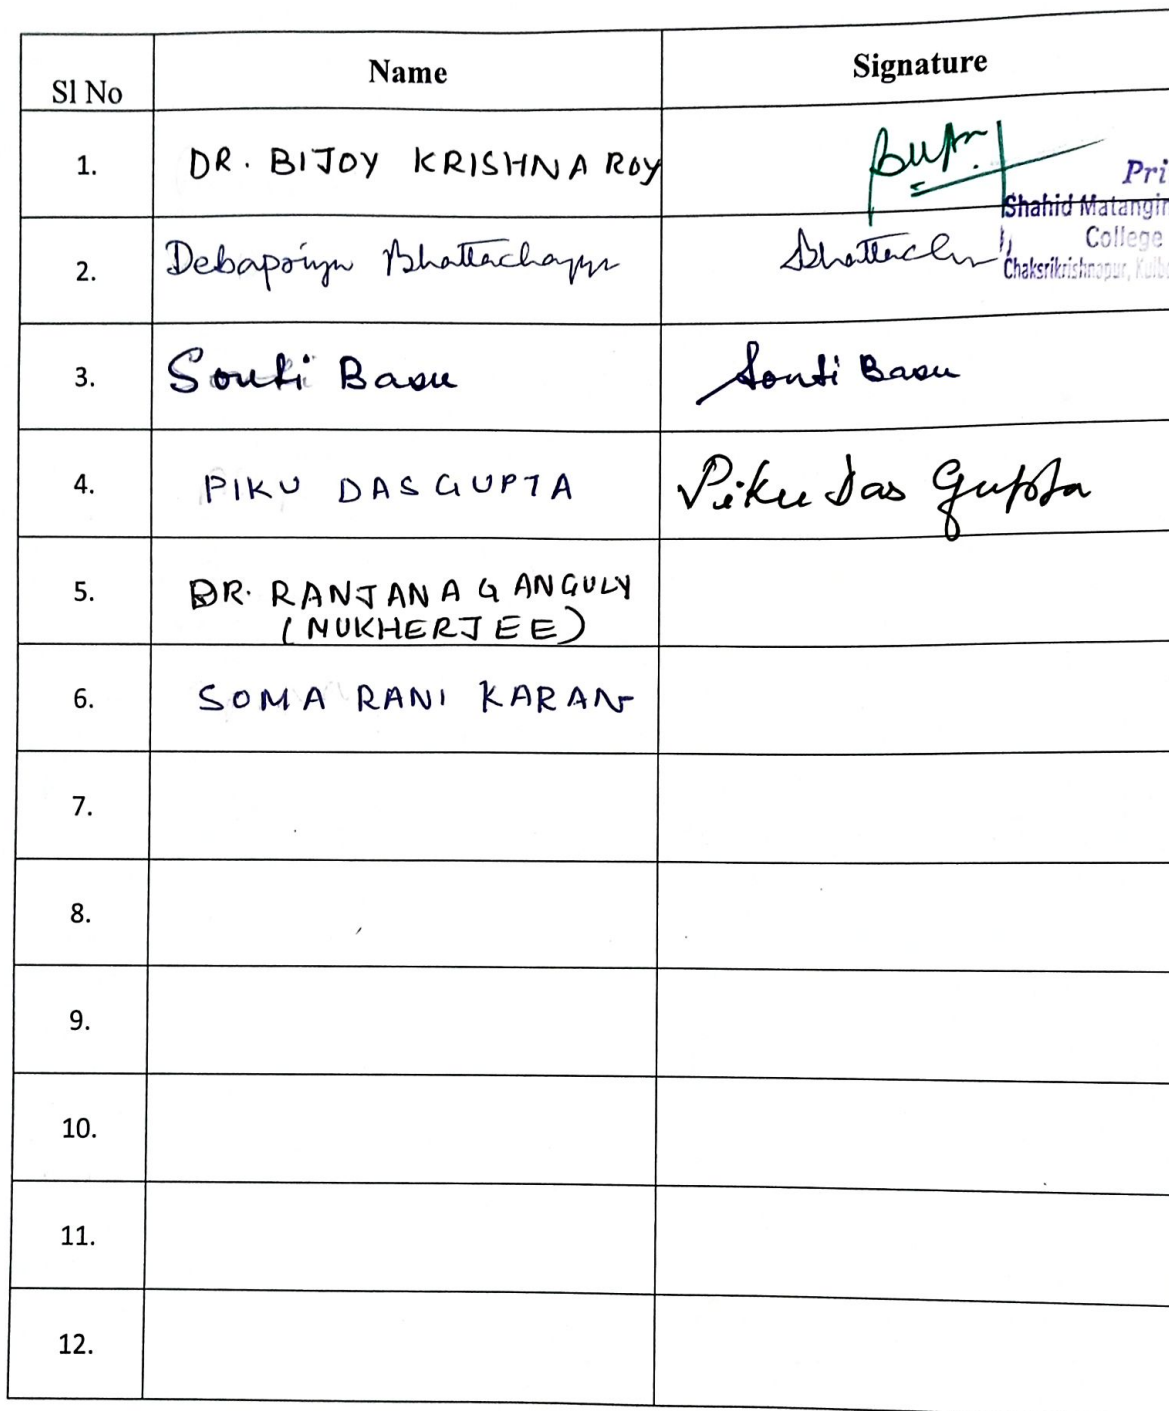 Sl No Name Signature
1. DR. BIJOY KRISHNA ROY
Pri
Shahid Matangin
College
Chaksrikrishnapur, Kulb
2. Debapriya Bhattacharyya
3. Souti Basu Souti Basu
4. PIKU DASGUPTA Piku Das Gupta
5. DR. RANJANA GANGULY
(MUKHERJEE)
6. SOMA RANI KARAN
7.
8.
9.
10.
11.
12.